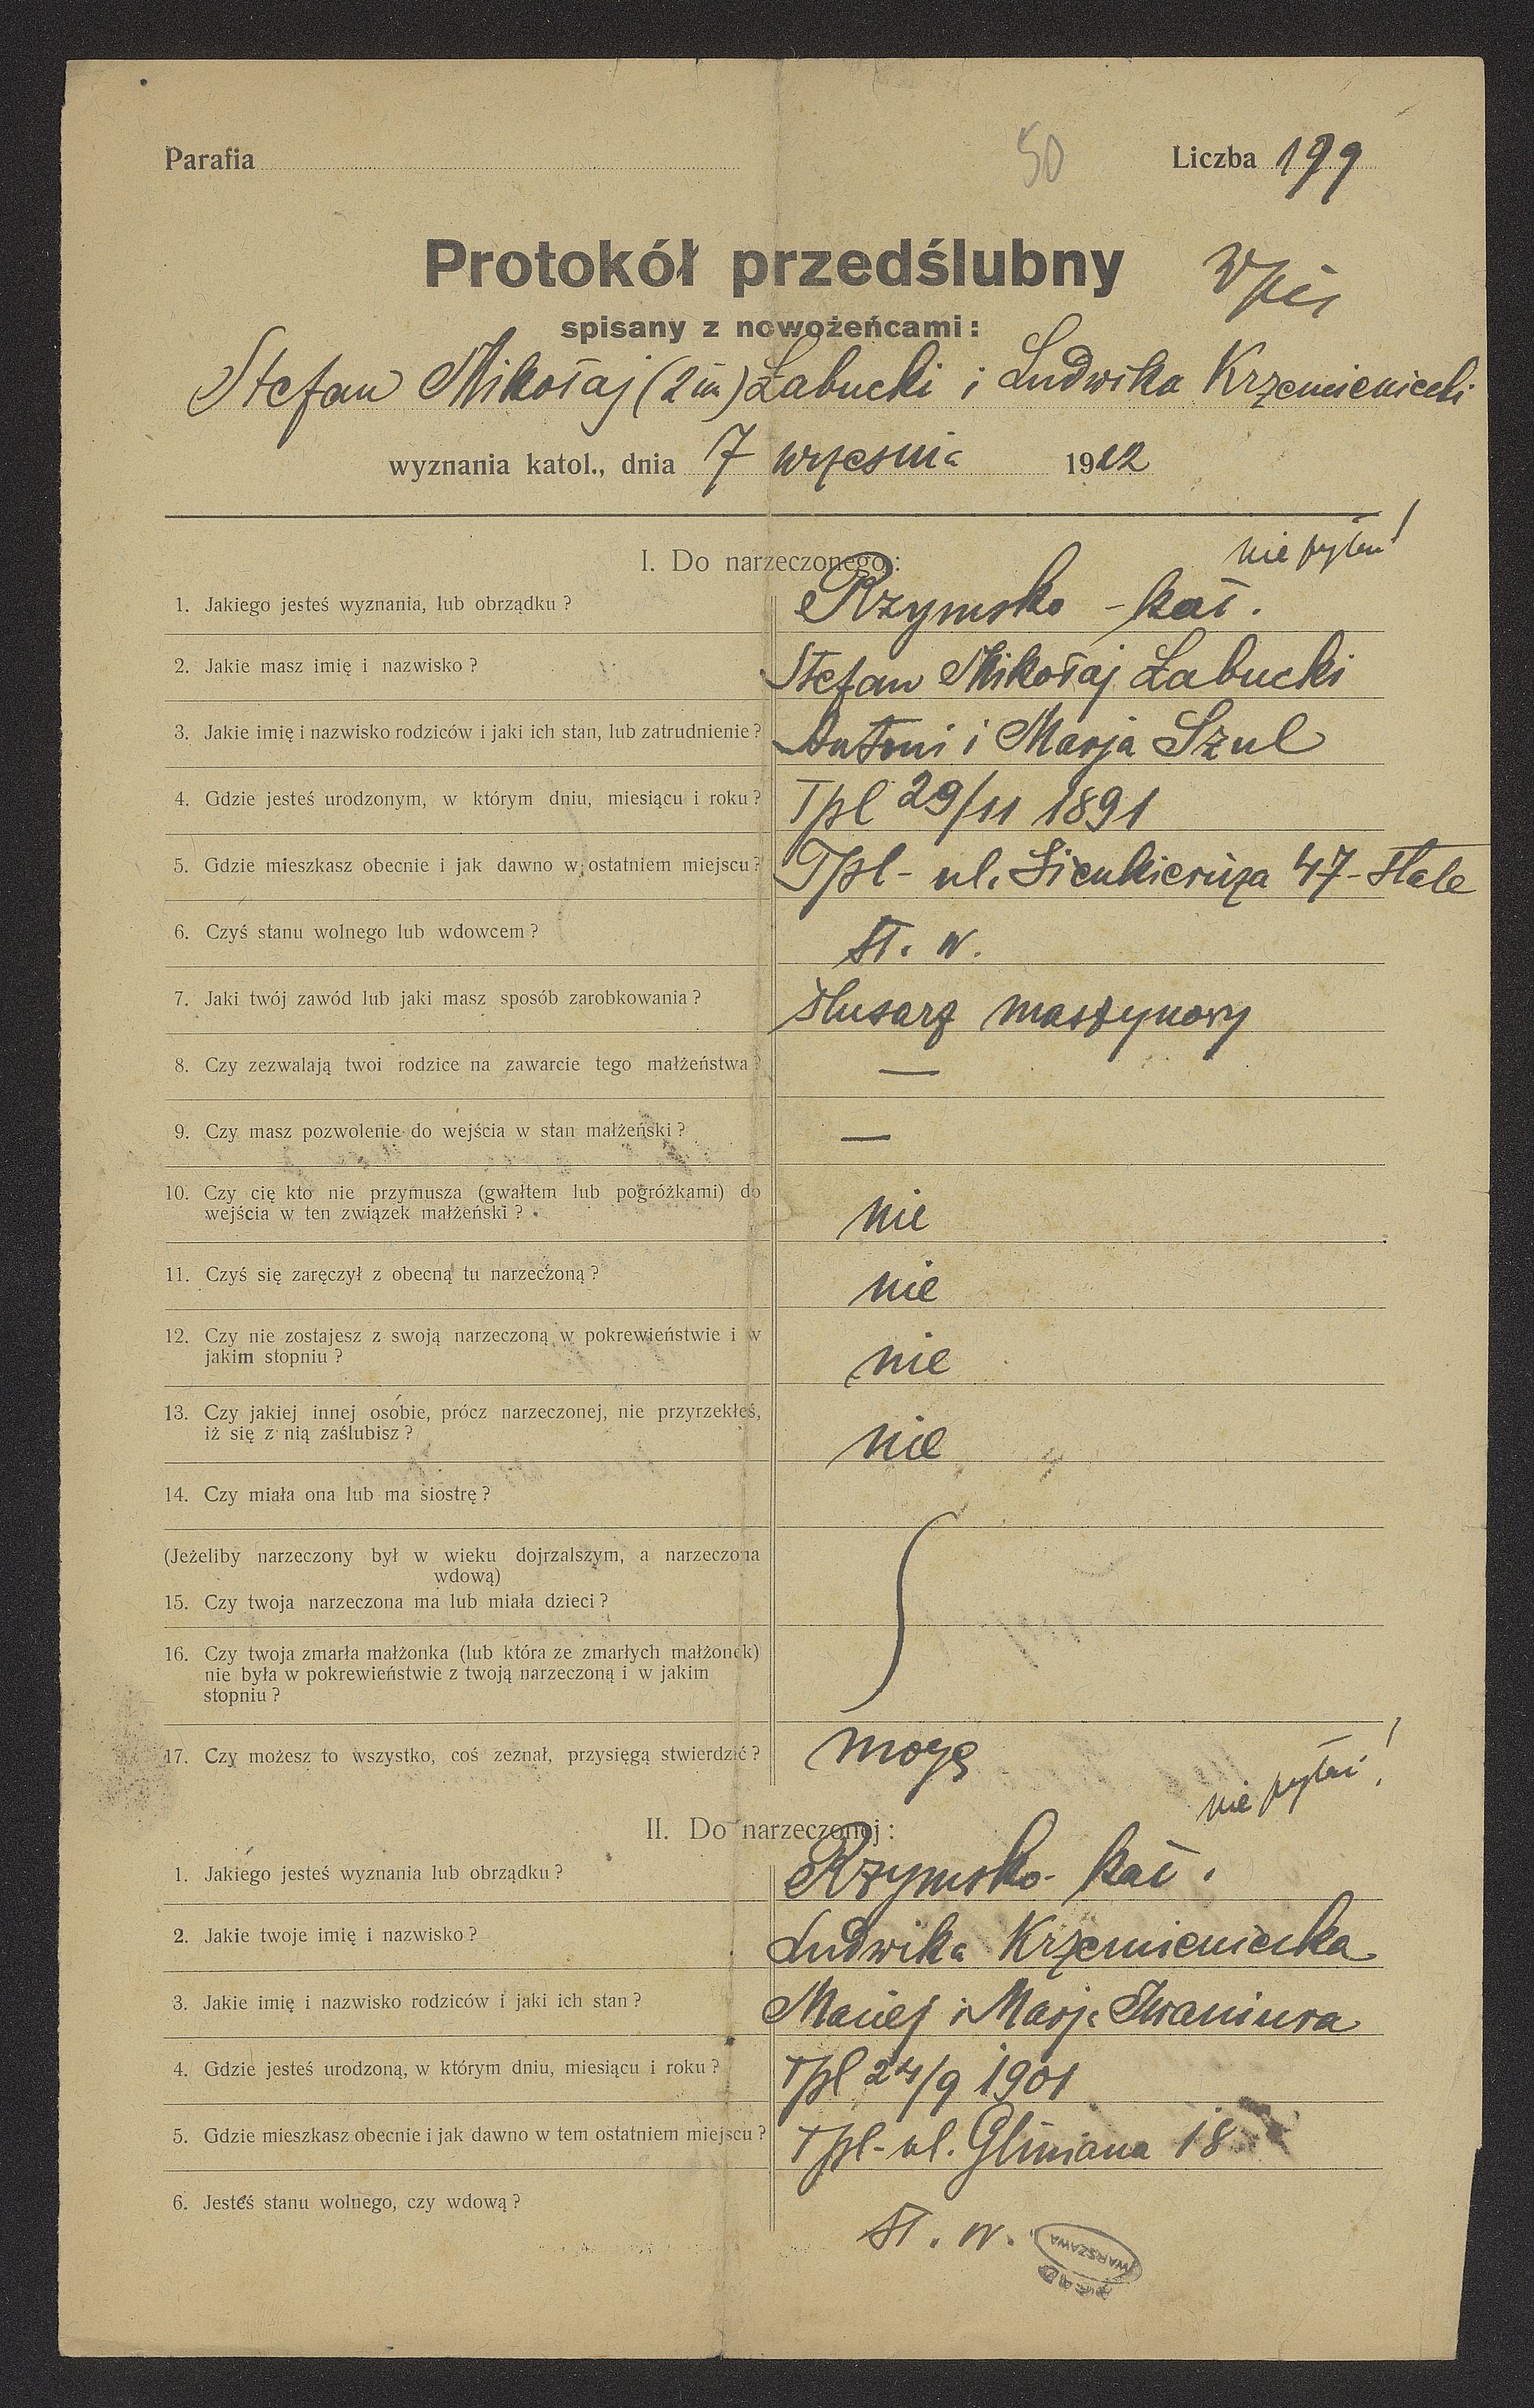 Parafia 50 Liczba 199
Protokół przedślubny Wpis
spisany z nowożeńcami:
Stefan Mikołaj (2 im) Łabucki i Ludwika Krzemieniecki
wyznania katol., dnia 7 września 1922
I. Do narzeczonego: nie pytać!
1. Jakiego jesteś wyznania, lub obrządku? Rzymsko-kat.
2. Jakie masz imię i nazwisko? Stefan Mikołaj Łabucki
3. Jakie imię i nazwisko rodziców i jaki ich stan, lub zatrudnienie? Antoni i Marja Szul
4. Gdzie jesteś urodzonym, w którym dniu, miesiącu i roku? Tpl 29/11 1891
5. Gdzie mieszkasz obecnie i jak dawno w ostatniem miejscu? Tpl - ul. Sienkiewicza 47 - stale
6. Czyś stanu wolnego lub wdowcem? st. w.
7. Jaki twój zawód lub jaki masz sposób zarobkowania? ślusarz maszynowy
8. Czy zezwalają twoi rodzice na zawarcie tego małżeństwa? —
9. Czy masz pozwolenie do wejścia w stan małżeński? —
10. Czy cię kto nie przymusza (gwałtem lub pogróżkami) do
wejścia w ten związek małżeński? nie
11. Czyś się zaręczył z obecną tu narzeczoną? nie
12. Czy nie zostajesz z swoją narzeczoną w pokrewieństwie i w
jakim stopniu? nie
13. Czy jakiej innej osobie, prócz narzeczonej, nie przyrzekłeś,
iż się z nią zaślubisz? nie
14. Czy miała ona lub ma siostrę?
(Jeżeliby narzeczony był w wieku dojrzalszym, a narzeczona
wdową)
15. Czy twoja narzeczona ma lub miała dzieci?
16. Czy twoja zmarła małżonka (lub która ze zmarłych małżonek)
nie była w pokrewieństwie z twoją narzeczoną i w jakim
stopniu?
17. Czy możesz to wszystko, coś zeznał, przysięgą stwierdzić? mogę
II. Do narzeczonej: nie pytać!
1. Jakiego jesteś wyznania lub obrządku? Rzymsko-kat.
2. Jakie twoje imię i nazwisko? Ludwika Krzemieniecka
3. Jakie imię i nazwisko rodziców i jaki ich stan? Maciej i Marja Iwaniura
4. Gdzie jesteś urodzoną, w którym dniu, miesiącu i roku? Tpl 24/9 1901
5. Gdzie mieszkasz obecnie i jak dawno w tem ostatniem miejscu? Tpl - ul. Gliniana 18
6. Jesteś stanu wolnego, czy wdową? st. w.
WARSZAWA